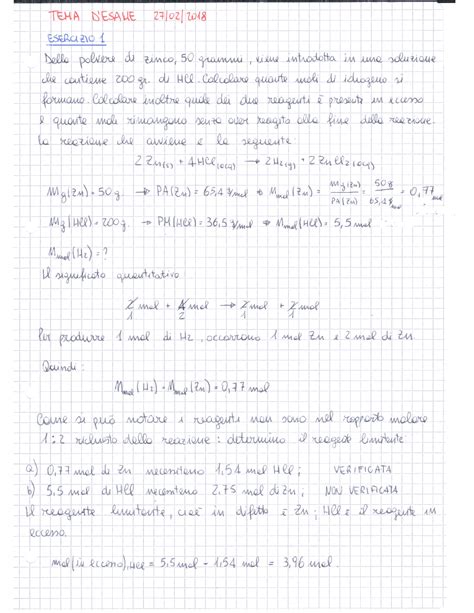 TEMA D'ESAME 27/02/2018
ESERCIZIO 1
Della polvere di zinco, 50 grammi, viene introdotta in una soluzione
che contiene 200 gr. di HCl. Calcolare quante moli di idrogeno si
formano. Calcolare inoltre quale dei due reagenti è presente in eccesso
e quante moli rimangono senza aver reagito alla fine della reazione.
La reazione che avviene è la seguente:
2 Zn(s) + 4HCl(aq) → 2H2(g) + 2ZnCl2(aq)
Mg(Zn) = 50g → PA(Zn) = 65,4 g/mol → Mmol(Zn) = Mg(Zn)/PA(Zn) = 50g/65,4 g/mol = 0,77 mol
Mg(HCl) = 200g → PM(HCl) = 36,5 g/mol → Mmol(HCl) = 5,5 mol
Mmol(H2) = ?
Il significato quantitativo:
2 mol + 4 mol → 2 mol + 2 mol
1 2 1 1
Per produrre 1 mol di H2, occorrono 1 mol Zn e 2 mol di Zn
Quindi:
Mmol(H2) = Mmol(Zn) = 0,77 mol
Come si può notare i reagenti non sono nel rapporto molare
1:2 richiesto dalla reazione: determino il reagente limitante
a) 0,77 mol di Zn necessitano 1,54 mol HCl; VERIFICATA
b) 5,5 mol di HCl necessitano 2,75 mol di Zn; NON VERIFICATA
Il reagente limitante, cioè in difetto è Zn; HCl è il reagente in
eccesso.
mol(in eccesso), HCl = 5,5 mol - 1,54 mol = 3,96 mol.